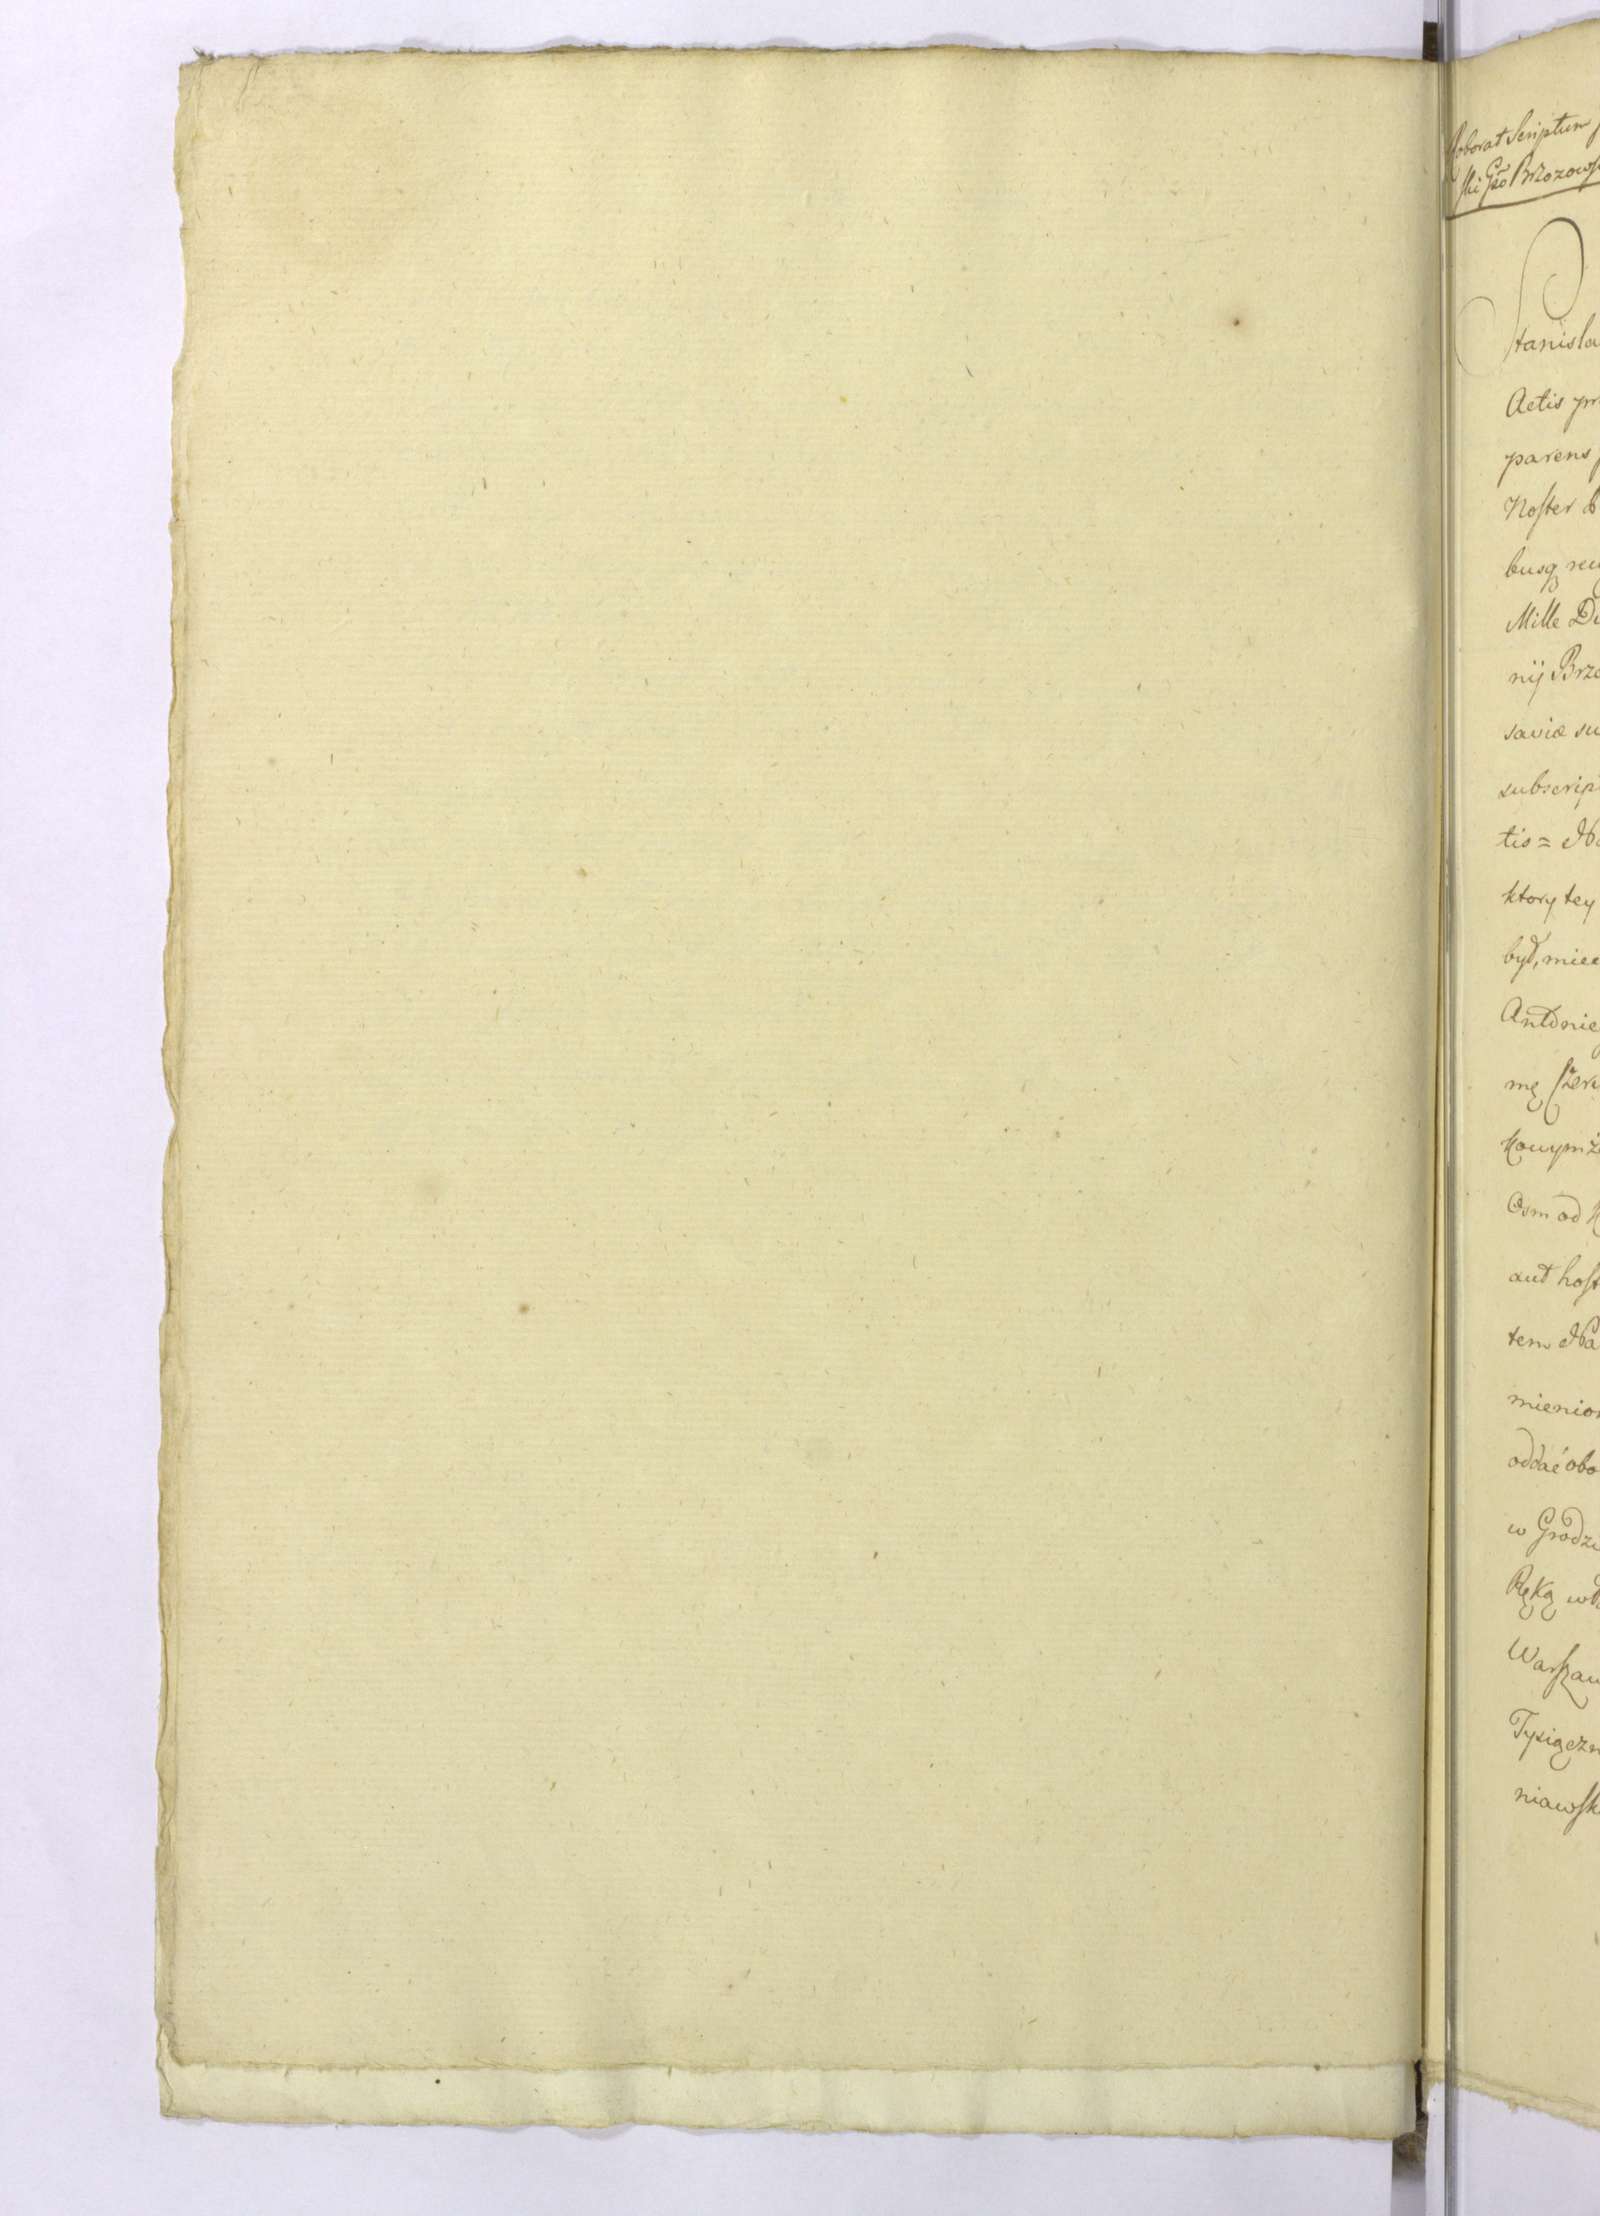 Roborat Scriptum
ski Gso Brzozows
Stanisla
Actis pr
parens
Noster
busq reu
Mille Du
nij Brzo
saviæ su
subscrip
tis = Na
ktory tey
był, miee
Antonie
mę
Kouymż
Osm od
aut host
tem Na
mienion
oddać obo
w Grodzi
Ręką wł
Warszaw
Tysiączn
niawsk